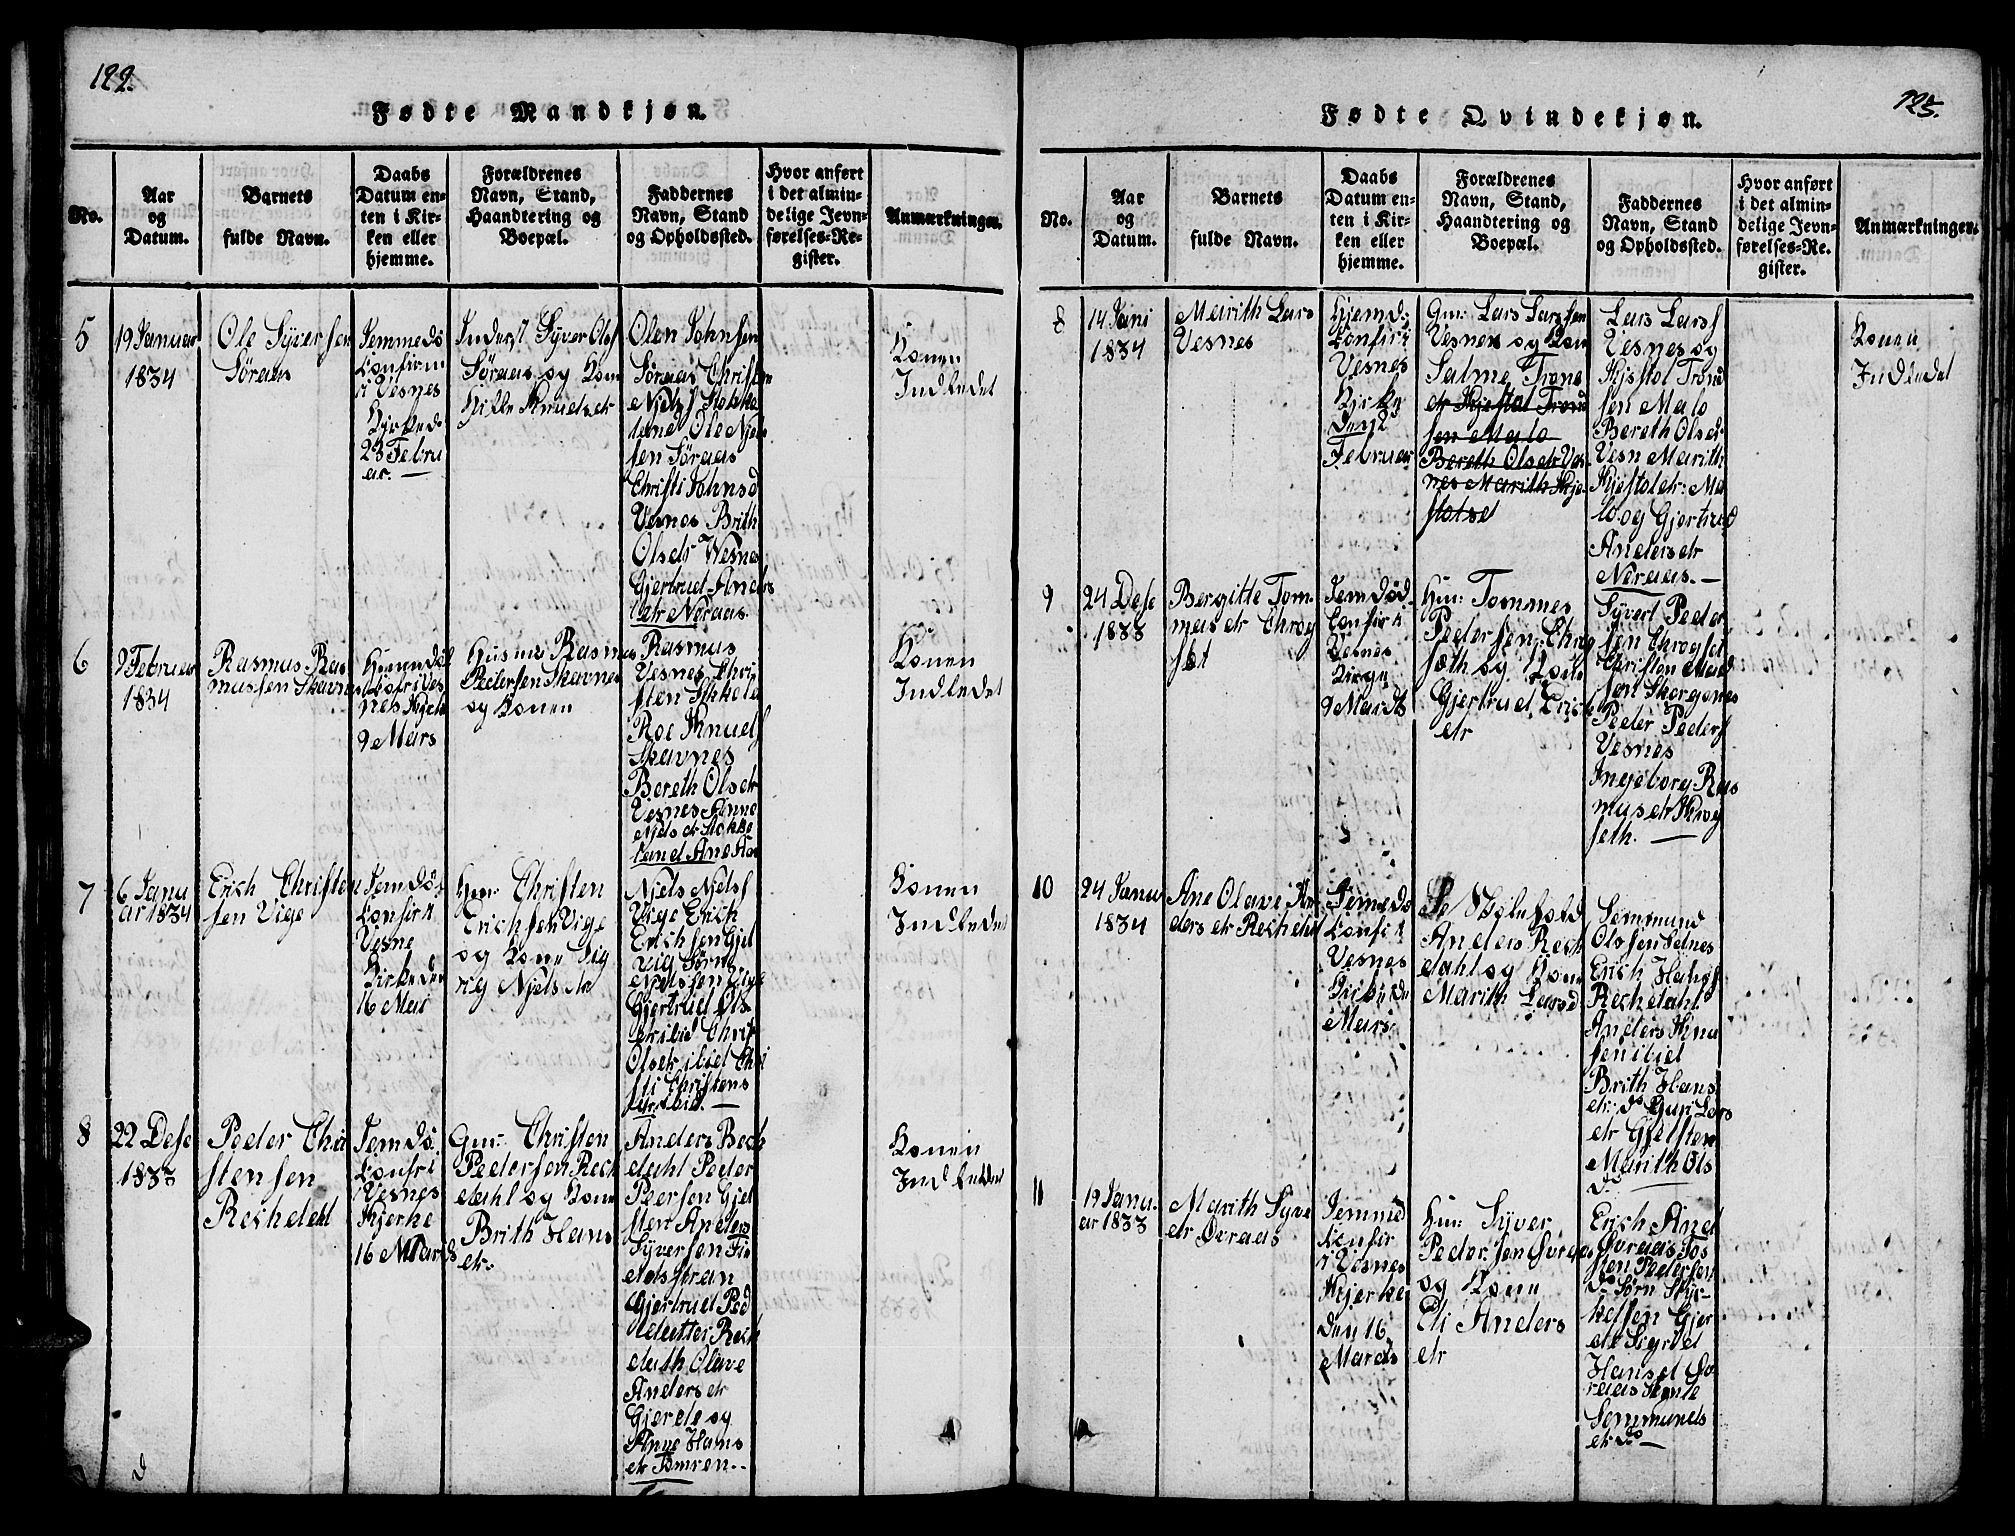 122.
Fødte Mandkjøn.
No.
Aar
og
Datum.
Barnets
fulde Navn.
Daabs
Datum en-
ten i Kir-
ken eller
hjemme.
Forældrenes
Navn, Stand,
Haandtering og
Boepæl.
Faddernes
Navn, Stand
og Opholdssted.
Hvor anført
i det almin-
delige Jevn-
førelses-Re-
gister.
Anmærkninger.
5
19 Januar
1834
Ole Syversen
Søraas
Jemmedø
Confirm
i Vesnes
Kirke d
23 Febru
ar.
Inderst Syver Ols
Søraas og Kone
Knudsdr
Olen Johnsen
Søraas Christen
Niels Stokke
land Ole Niel
sen Søraas
Christi Johnsd
Vesnes Brith
Olsdr Wesnes
Gjertrud Anders
datr Nøraas
Konen
Indledet
6
9 Februar
1834
Rasmus Ras
mussen Skavnes
Hjemdøb
Confr Ves
nes Kjerke
9 Mars
Husm Rasmus
Pedersen Skavnes
og Konen
Rasmus
Vesnes Chri
sten
Roe Knuds
Skavnes
Bereth Olsdr
Vesnes Anne
Niels dr Stokke
land Ane
Konen
Indledet
7
6 Janu
ar 1834
Erich Christen
sen Vige
Jemdø
Confir i
Vesne
Kirke den
16 Mars
Hm: Christen
Erichsen Vige
og Kone Sig
rig Niels dr
Niels Niels
Vige Erich
Erichsen Gjel
vig Sørne
Nielssen
Gjertrud Ols
dr ibid Chris
Olsdr ibid Chri
sti Christens
dr ibid.
Konen
Indledet
8
22 Dese
1833
Peder Chri
stensen
Rechdahl
Jemdø
Confri
i Vesnes
Kjerke
16 Marts
Gm: Christen
Pedersen Rech
dahl og Kone
Brith Hans
dr
Anders Rech
dahl Peder
Peersen Gjel
sten Anders
Syversen Fi
Gjertrud Ped
datter Rech
dath Olave
Anders dr
Gjerde og
Anne Hans
dr
Konen
Indledet
125.
Fødte Qvindekjøn.
No.
Aar
og
Datum.
Barnets
fulde Navn.
Daabs
Datum en-
ten i Kir-
ken eller
hjemme.
Forældrenes
Navn, Stand,
Haandtering og
Boepæl.
Faddernes
Navn, Stand
og Opholdssted.
Hvor anført
i det almin-
delige Jevn-
førelses-Re-
gister.
Anmærkninger.
8
14 Jani
1834
Marith Lars
Vesnes
Hjemd:
Confir i
Vesnes
Kirke
Den 2
Februar
Gm: Lars Larssen
Vesnes og Kon
Salme Trone
dr Kjestol Trond
sen Malo
Bereth Olsdr Ves
nes Marith Kje
stolsd
Lars Lars
Vesnes og
Kjestol Trond
sen Malo
Bereth Olsdr
Vesn Marith
Kjestoldr: Ma
lo og Gjertrud
Anders dr
Nøraas.
Konen
Indledet
9
24 Dese
1833
Bergitte Tom
mas dr Chrog
set
Jemdød
Confir i
Vesnes
Kirge
9 Marts
Hm: Tommes
Pedersen Chrog
sæth og Kone
Gjertrud Erics
dr
Syvert Peder
sen Chrogset
Christen Mad
sen Skorgenes
Peder Peders
Vesnes
Ingeborg Ras
mus dr Krog
seth.
10
24 Janu
1834
Ane Olave An
ders dr Rechdal
Jemmedø
Confir i
Vesnes
Mars
Anders Rech
dahl og Kone
Marith Larsd
Semmund
Olssen Selnes
Erich Hans
Rechdahl
Anders Knu
sen ibid
Brith Hans
dr: do Guri Lars
dr Gjelsten
Marith Ols
do
11
19 Janu
ar 1833
Marith Syve
dr Øvraas
Jemmed
Confir
i Vesnes
Kjerke
Den 16
Marts
Hm: Syver
Pedersen Øvraas
og Kone
Eli Anders
dr
Erich And
Øvraas Jos
sten Pedersen
do Sørn Kje
Gjer
de Sigrid
Hansd Sø
raas
Semmunds
dr do